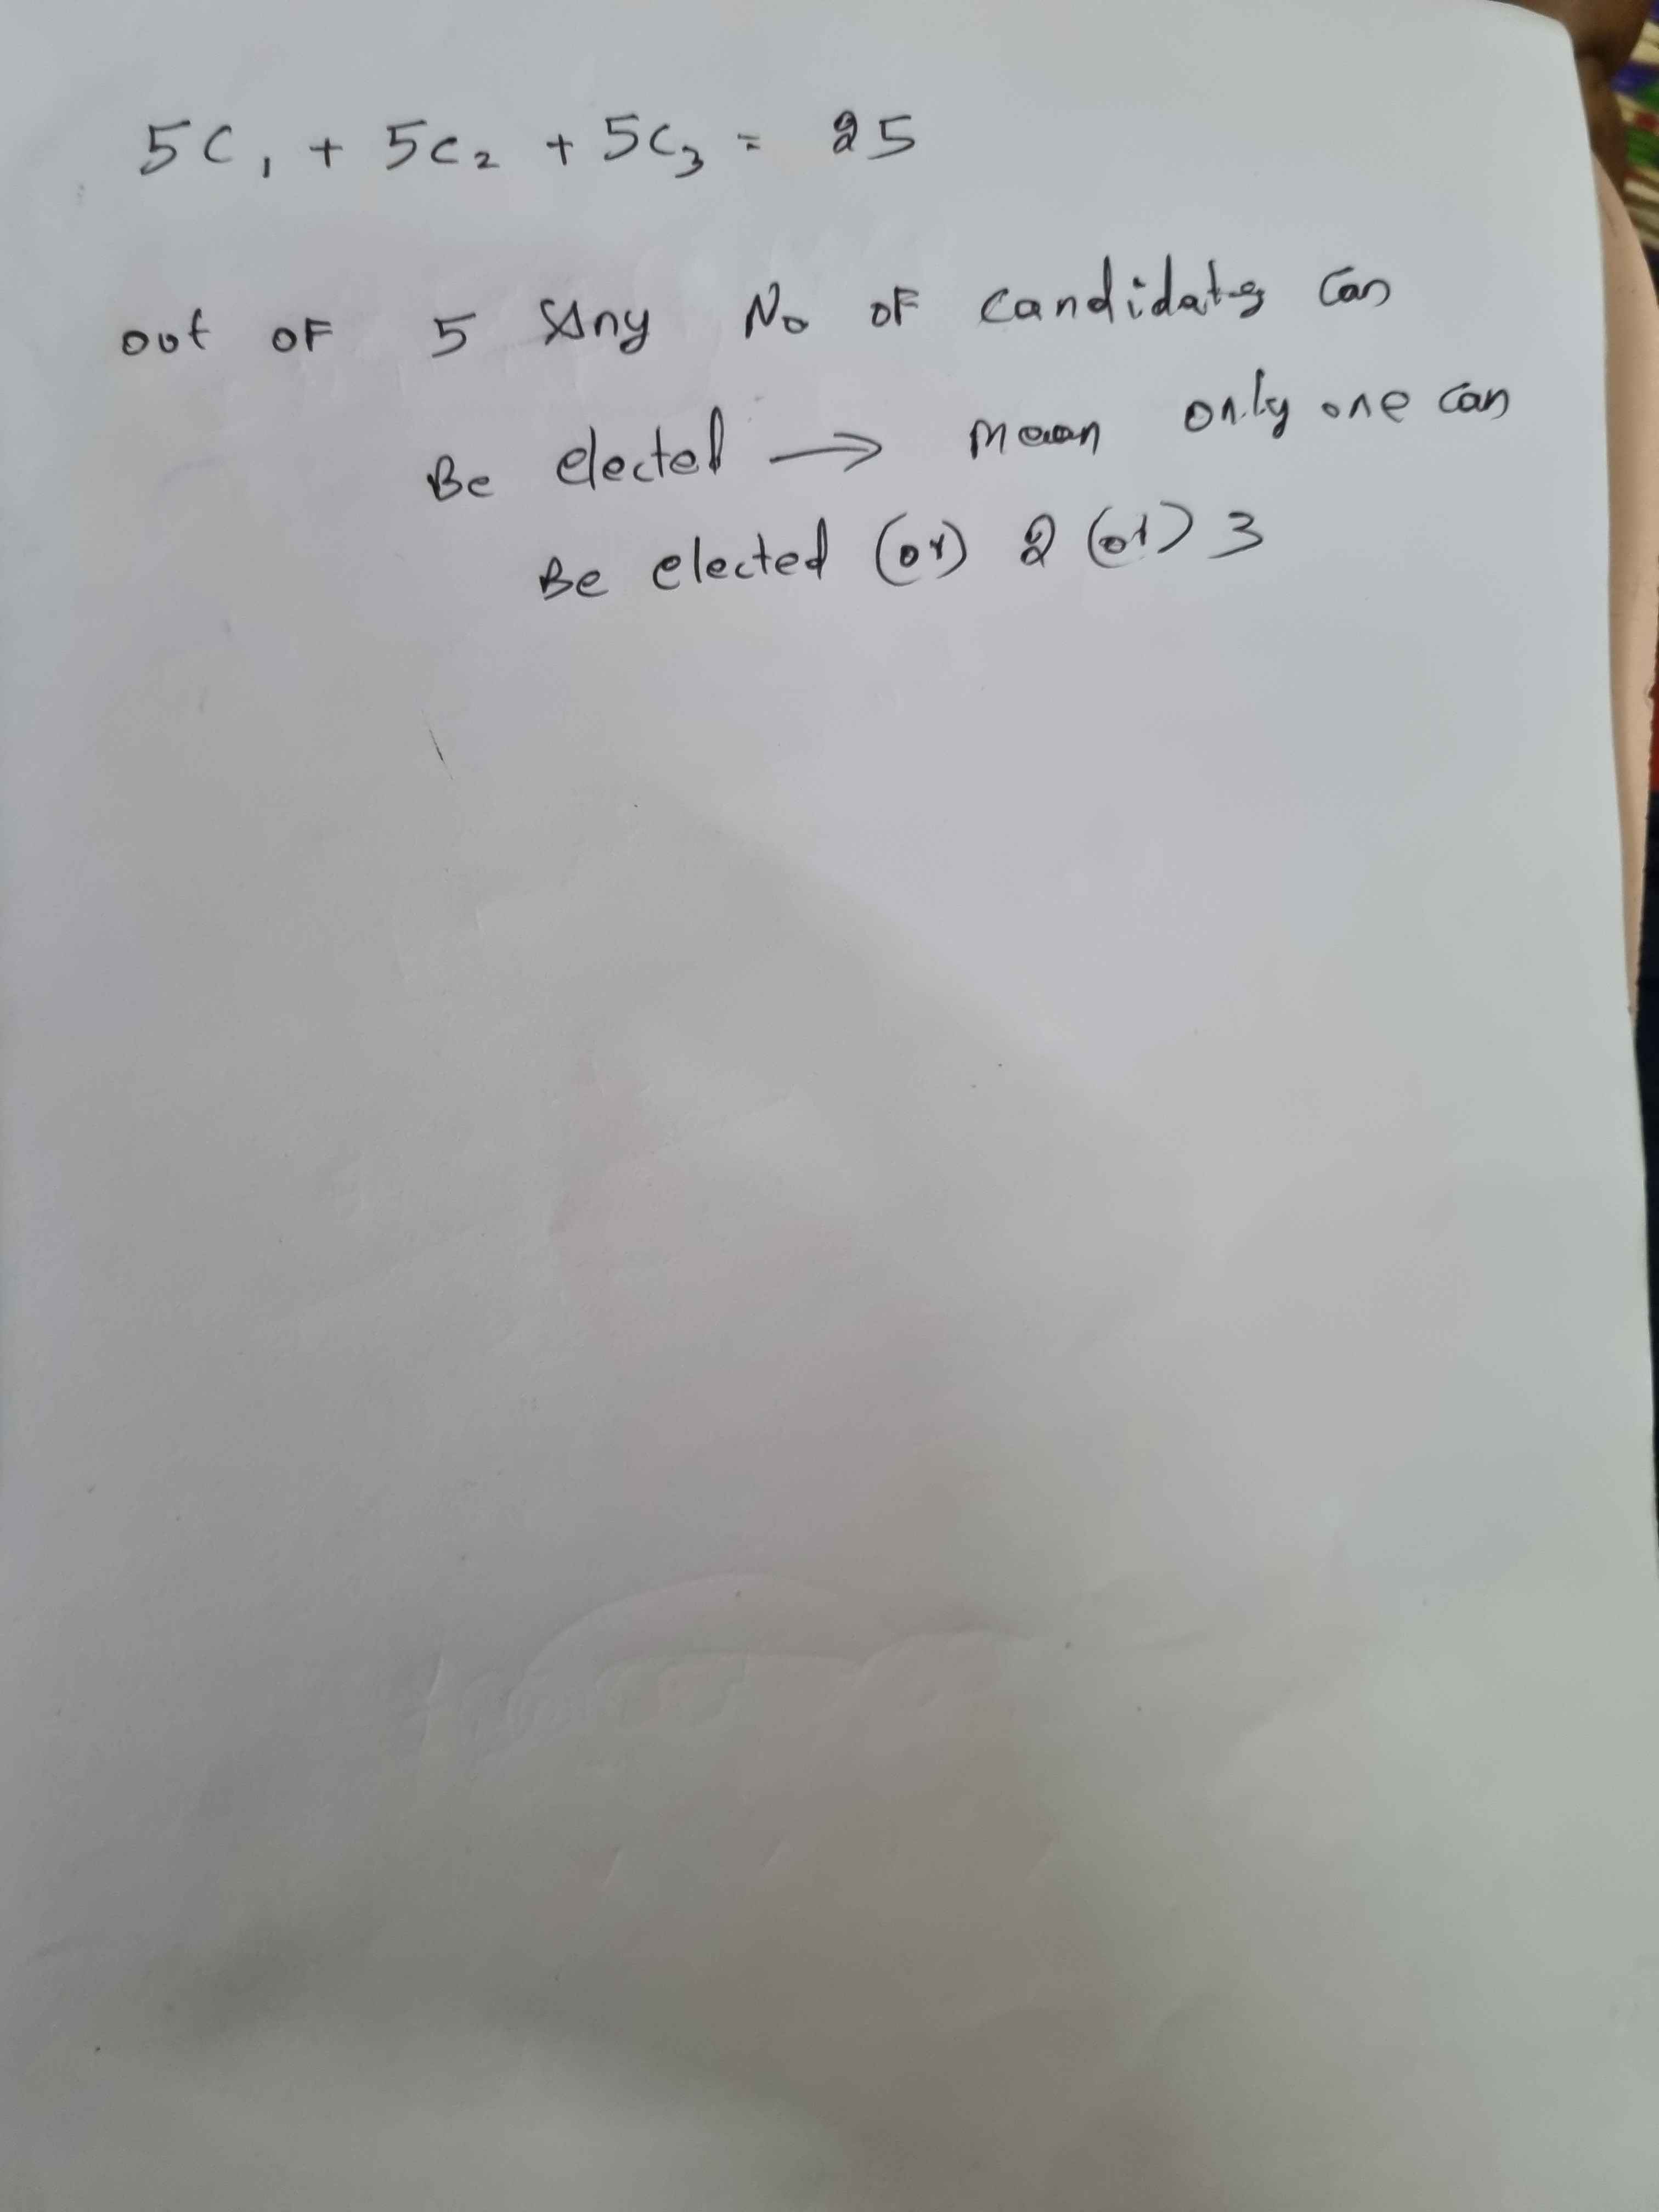 5C₁ + 5C₂ + 5C₃ = 25
out OF 5 Any No OF candidates can
Be elected → mean only one can
Be elected (or) 2 (or) 3